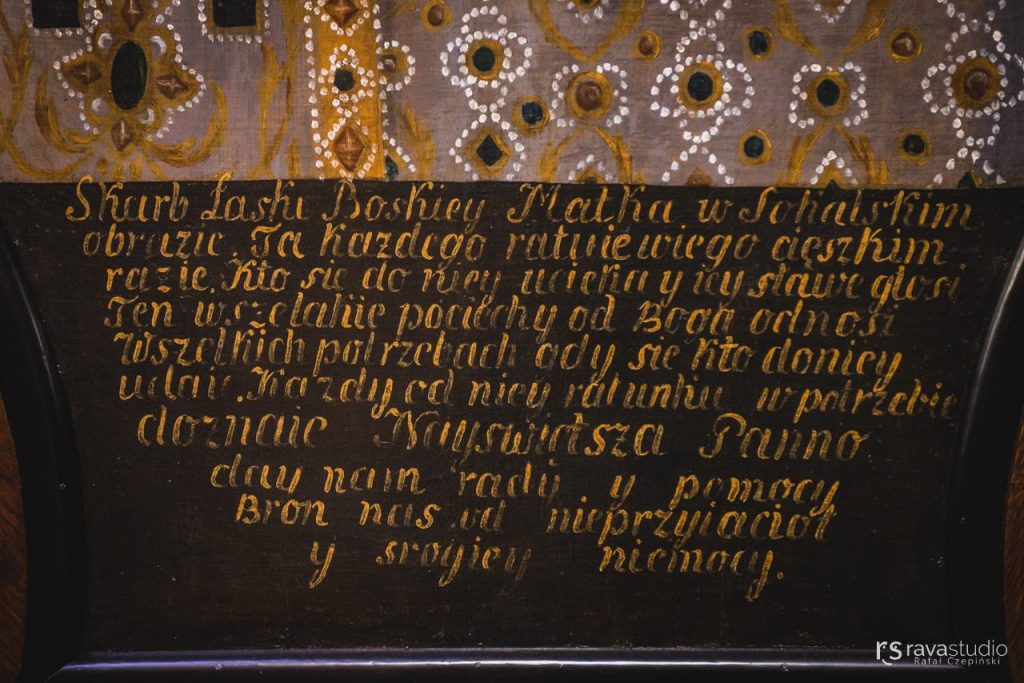 Skarb Łaski Boskiey Matka w Sokalskim
obrazie. Ta Kazdego ratuie wiego cięszkim
razie. Kto sie do niey ucieka y iey sławe głosi
Ten wszelakie pociechy od Boga odnosi
Wszelkich potrzebach gdy sie kto doniey
udaie. Kazdy od niey ratunku w potrzebie
doznaie Nayswiatsza Panno
day nam rady y pomocy
Bron nas od nieprzyiacioł
y srogiey niemocy.
rs ravastudio
Rafał Czepiński